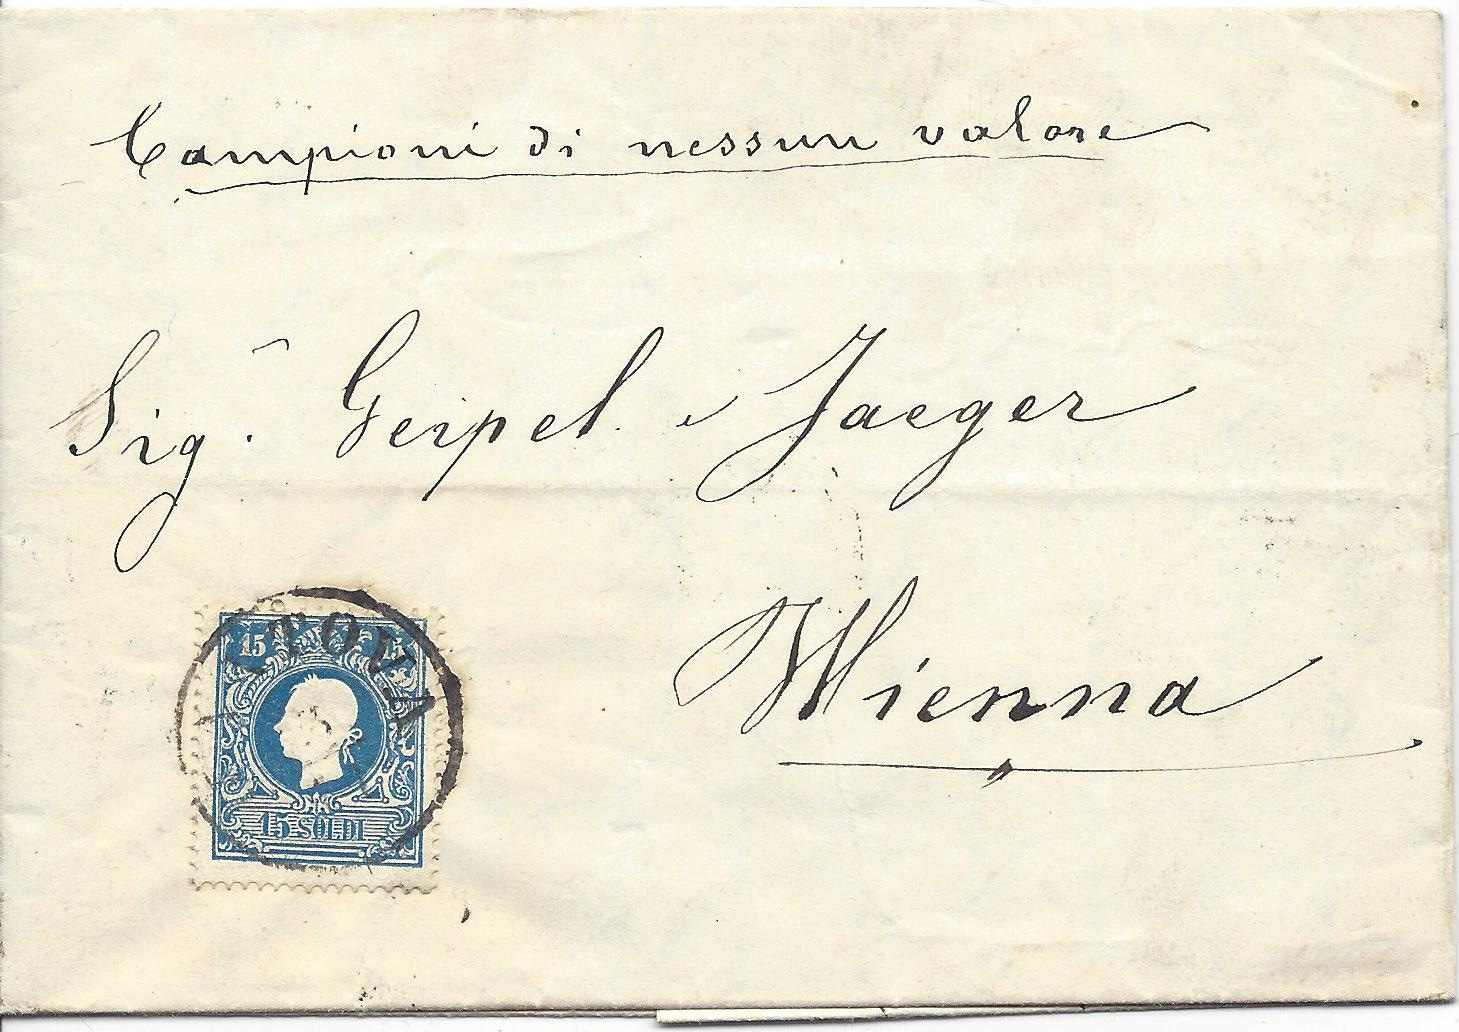 Campioni di nessun valore
Sigr. Geipel e Jaeger
Wienna
15 15
15 SOLDI